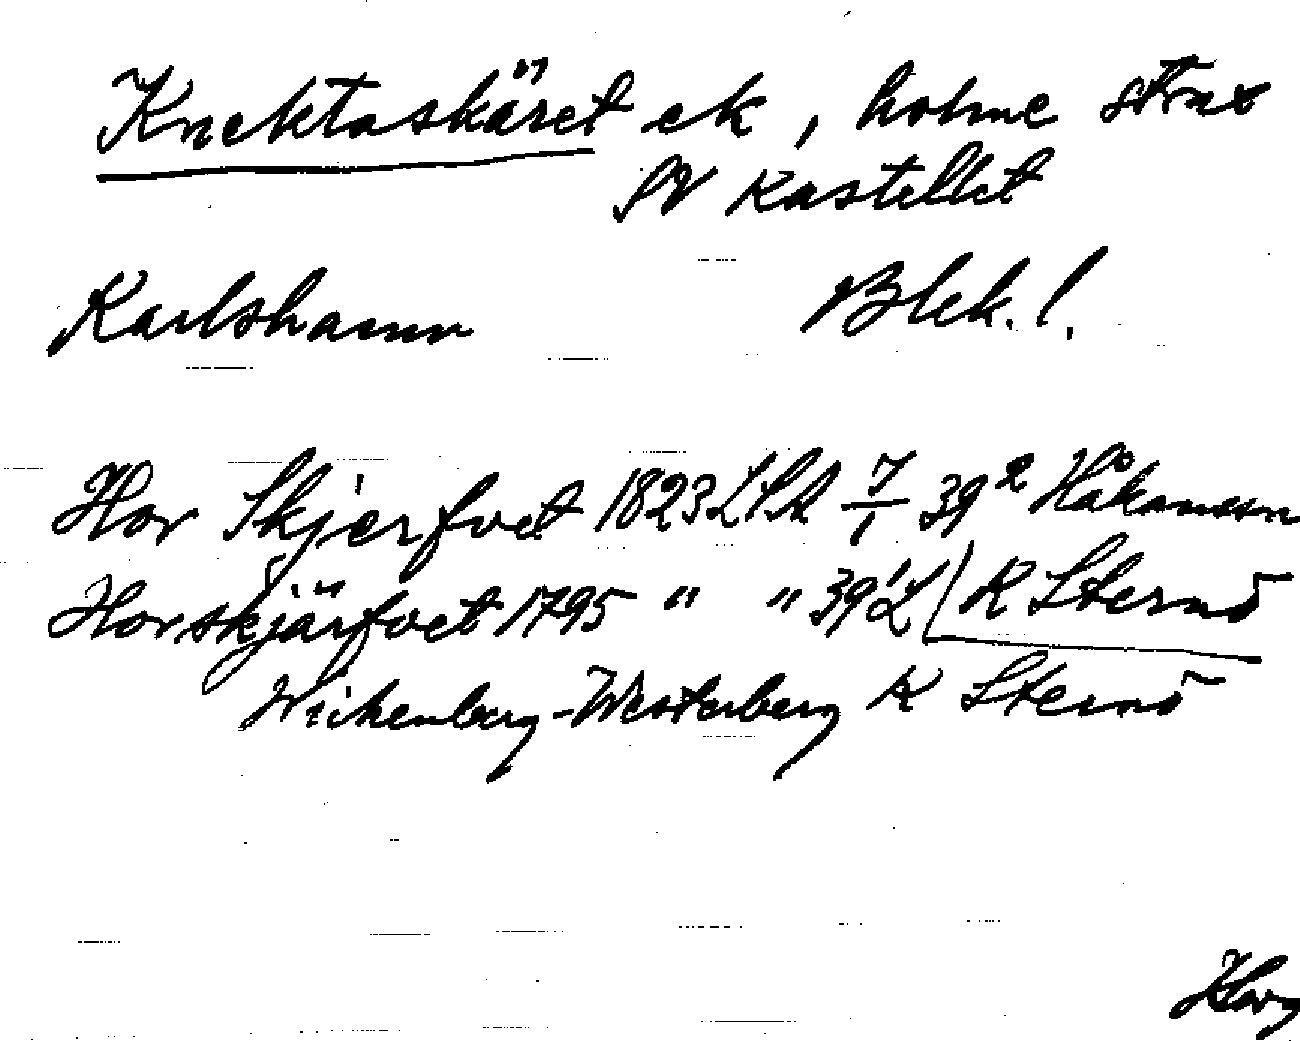 Knektaskäret ek, holme strax
SV Kastellet
Karlshamn Blek. l.
Hor Skjerfvet 1823 LSA 7/1 39² Håkansson
Horskjärfvet 1795 " " 39' L K Sternö
Wickenberg-Westerberg K Sternö